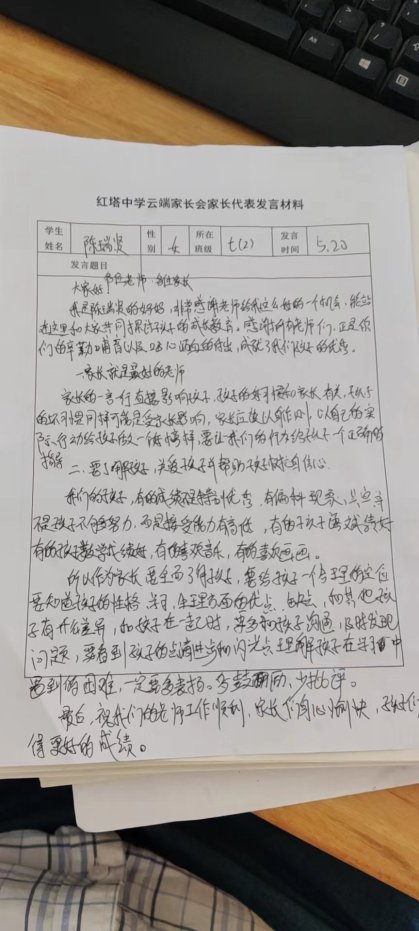 红塔中学云端家长会家长代表发言材料
学生姓名 陈瑞炎 性别 女 所在班级 七(2) 发言时间 5.20
发言题目
大家好 各位老师 各位家长
我是陈瑞炎的妈妈,非常感谢老师给我这么好的一个机会,能够
在这里和大家共同探讨孩子的成长教育。感谢所有老师们,正是你
们的辛勤哺育以及的付出,成就了我们孩子的优秀。
一、家长就是最好的老师
家长的一言行直接影响孩子,孩子的好习惯和家长有关,孩子
的坏习惯同样可能是受家长影响,家长应该以身作则,以自己的实
际行动给孩子做一个好榜样,要让我们的行为给孩子一个正确的
指导
二、要了解孩子,关爱孩子并帮助孩子树立自信心
我们的孩子,有的成绩很特别优秀,有偏科现象,其实并
不是孩子不够努力,而是接受能力有高低,有的孩子语文成绩好
有的孩子数学成绩好,有的喜欢音乐,有的喜欢画画。
所以作为家长要全面了解孩子,要给孩子一个合理的定位
要知道孩子的性格,生理方面的优点、缺点,和其他孩
子有什么差异,和孩子在一起时,常多和孩子沟通,及时发现
问题,要看到孩子的点滴进步和闪光点,理解孩子在学习中
遇到的困难,一定要多表扬。多鼓励,少批评。
最后,祝我们的老师工作顺利,家长们身心愉快,孩子们
得更好的成绩。